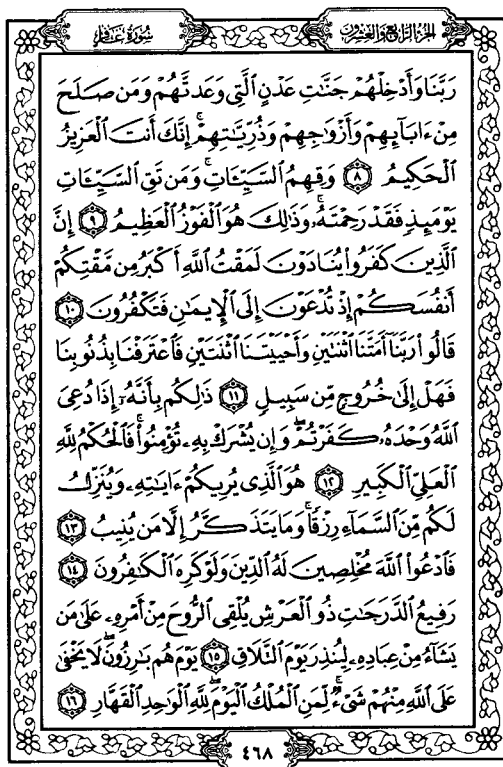 الجزء الرابع والعشرون سورة غافر
رَبَّنَا وَأَدْخِلْهُمْ جَنَّٰتِ عَدْنٍ ٱلَّتِى وَعَدتَّهُمْ وَمَن صَلَحَ
مِنْ ءَابَآئِهِمْ وَأَزْوَٰجِهِمْ وَذُرِّيَّٰتِهِمْ ۚ إِنَّكَ أَنتَ ٱلْعَزِيزُ
ٱلْحَكِيمُ ٨ وَقِهِمُ ٱلسَّيِّـَٔاتِ ۚ وَمَن تَقِ ٱلسَّيِّـَٔاتِ
يَوْمَئِذٍ فَقَدْ رَحِمْتَهُۥ ۚ وَذَٰلِكَ هُوَ ٱلْفَوْزُ ٱلْعَظِيمُ ٩ إِنَّ
ٱلَّذِينَ كَفَرُوا۟ يُنَادَوْنَ لَمَقْتُ ٱللَّهِ أَكْبَرُ مِن مَّقْتِكُمْ
أَنفُسَكُمْ إِذْ تُدْعَوْنَ إِلَى ٱلْإِيمَٰنِ فَتَكْفُرُونَ ١٠
قَالُوا۟ رَبَّنَآ أَمَتَّنَا ٱثْنَتَيْنِ وَأَحْيَيْتَنَا ٱثْنَتَيْنِ فَٱعْتَرَفْنَا بِذُنُوبِنَا
فَهَلْ إِلَىٰ خُرُوجٍ مِّن سَبِيلٍ ١١ ذَٰلِكُم بِأَنَّهُۥٓ إِذَا دُعِىَ
ٱللَّهُ وَحْدَهُۥ كَفَرْتُمْ ۖ وَإِن يُشْرَكْ بِهِۦ تُؤْمِنُوا۟ ۚ فَٱلْحُكْمُ لِلَّهِ
ٱلْعَلِىِّ ٱلْكَبِيرِ ١٢ هُوَ ٱلَّذِى يُرِيكُمْ ءَايَٰتِهِۦ وَيُنَزِّلُ
لَكُم مِّنَ ٱلسَّمَآءِ رِزْقًا ۚ وَمَا يَتَذَكَّرُ إِلَّا مَن يُنِيبُ ١٣
فَٱدْعُوا۟ ٱللَّهَ مُخْلِصِينَ لَهُ ٱلدِّينَ وَلَوْ كَرِهَ ٱلْكَٰفِرُونَ ١٤
رَفِيعُ ٱلدَّرَجَٰتِ ذُو ٱلْعَرْشِ يُلْقِى ٱلرُّوحَ مِنْ أَمْرِهِۦ عَلَىٰ مَن
يَشَآءُ مِنْ عِبَادِهِۦ لِيُنذِرَ يَوْمَ ٱلتَّلَاقِ ١٥ يَوْمَ هُم بَٰرِزُونَ ۖ لَا يَخْفَىٰ
عَلَى ٱللَّهِ مِنْهُمْ شَىْءٌ ۚ لِّمَنِ ٱلْمُلْكُ ٱلْيَوْمَ ۖ لِلَّهِ ٱلْوَٰحِدِ ٱلْقَهَّارِ ١٦
٤٦٨